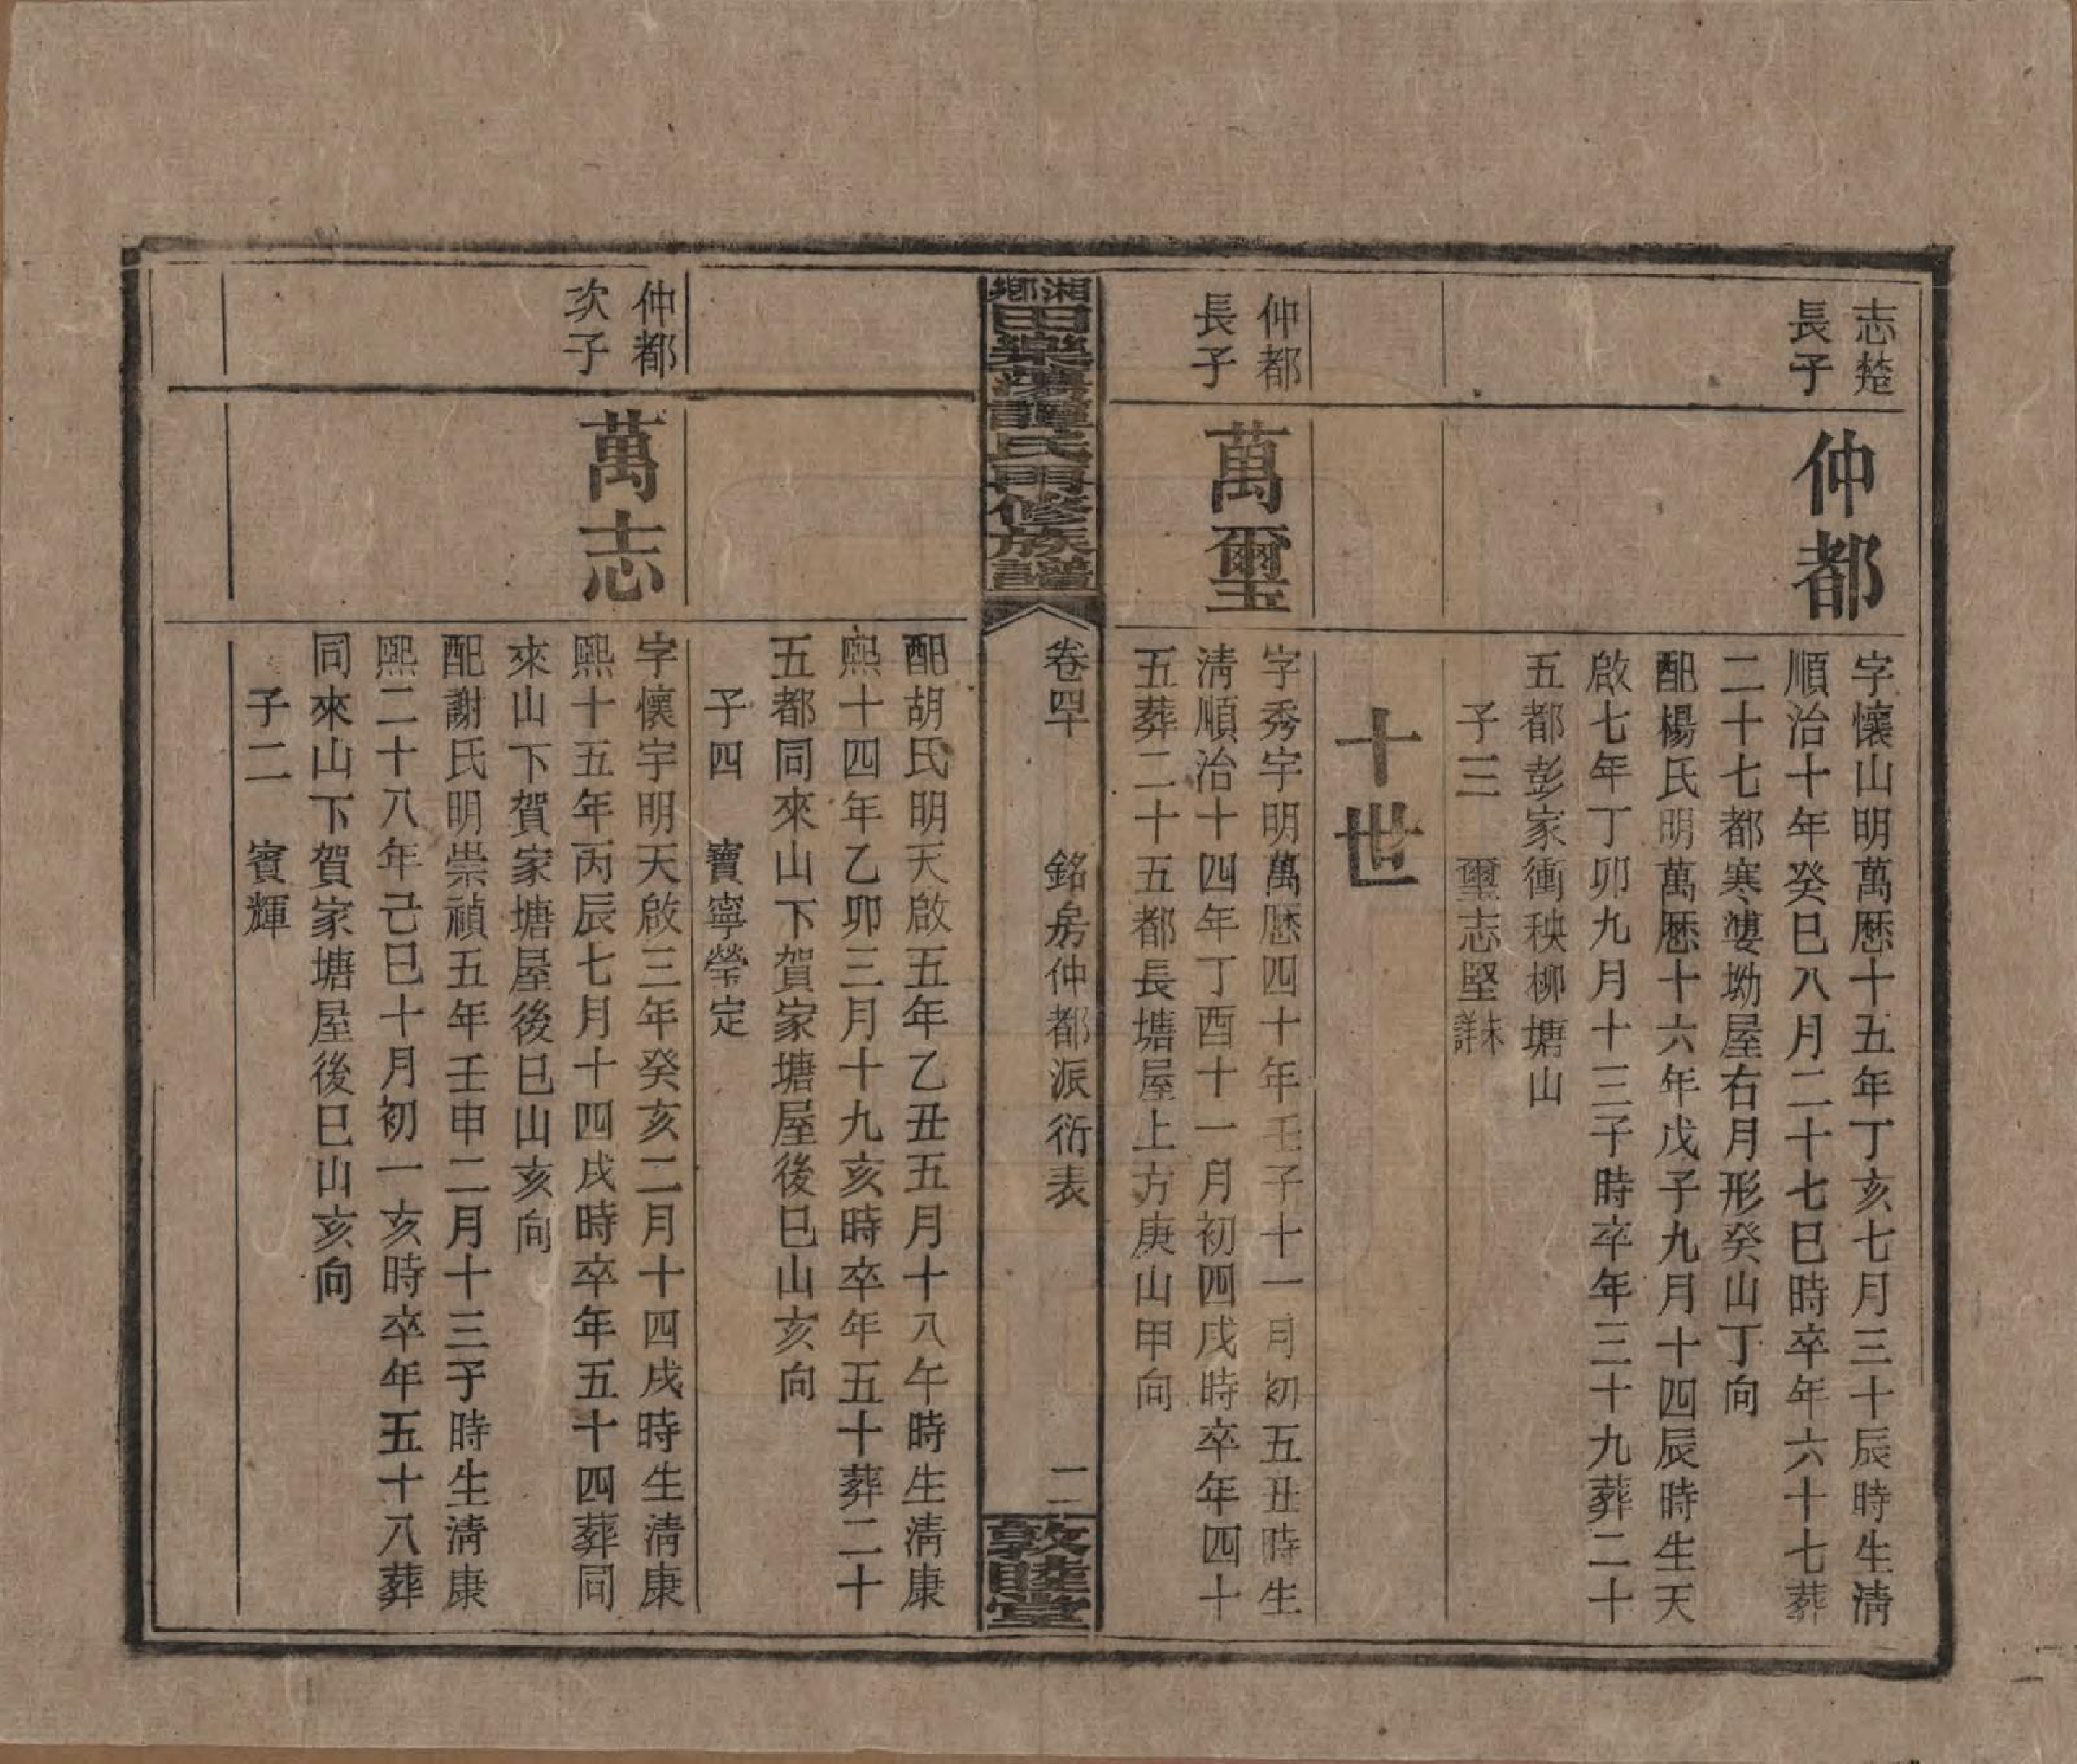 志楚
長子
仲都
字懷山明萬歷十五年丁亥七月三十辰時生淸
順治十年癸巳八月二十七巳時卒年六十七葬
二十七都寒婆坳屋右月形癸山丁向
配楊氏明萬歷十六年戊子九月十四辰時生天
啟七年丁卯九月十三子時卒年三十九葬二十
五都彭家衝秧柳塘山
子三　璽志堅未詳
十世
仲都
長子
萬璽
字秀宇明萬歷四十年壬子十一月初五丑時生
淸順治十四年丁酉十一月初四戌時卒年四十
五葬二十五都長塘屋上方庚山甲向
湘鄉田樂蕩譚氏再修族譜
卷四　銘房仲都派衍表　二
敦睦堂
配胡氏明天啟五年乙丑五月十八午時生淸康
熙十四年乙卯三月十九亥時卒年五十葬二十
五都同來山下賀家塘屋後巳山亥向
子四　寶寧瑩定
仲都
次子
萬志
字懷宇明天啟三年癸亥二月十四戌時生淸康
熙十五年丙辰七月十四戌時卒年五十四葬同
來山下賀家塘屋後巳山亥向
配謝氏明崇禎五年壬申二月十三子時生淸康
熙二十八年己巳十月初一亥時卒年五十八葬
同來山下賀家塘屋後巳山亥向
子二　賓輝